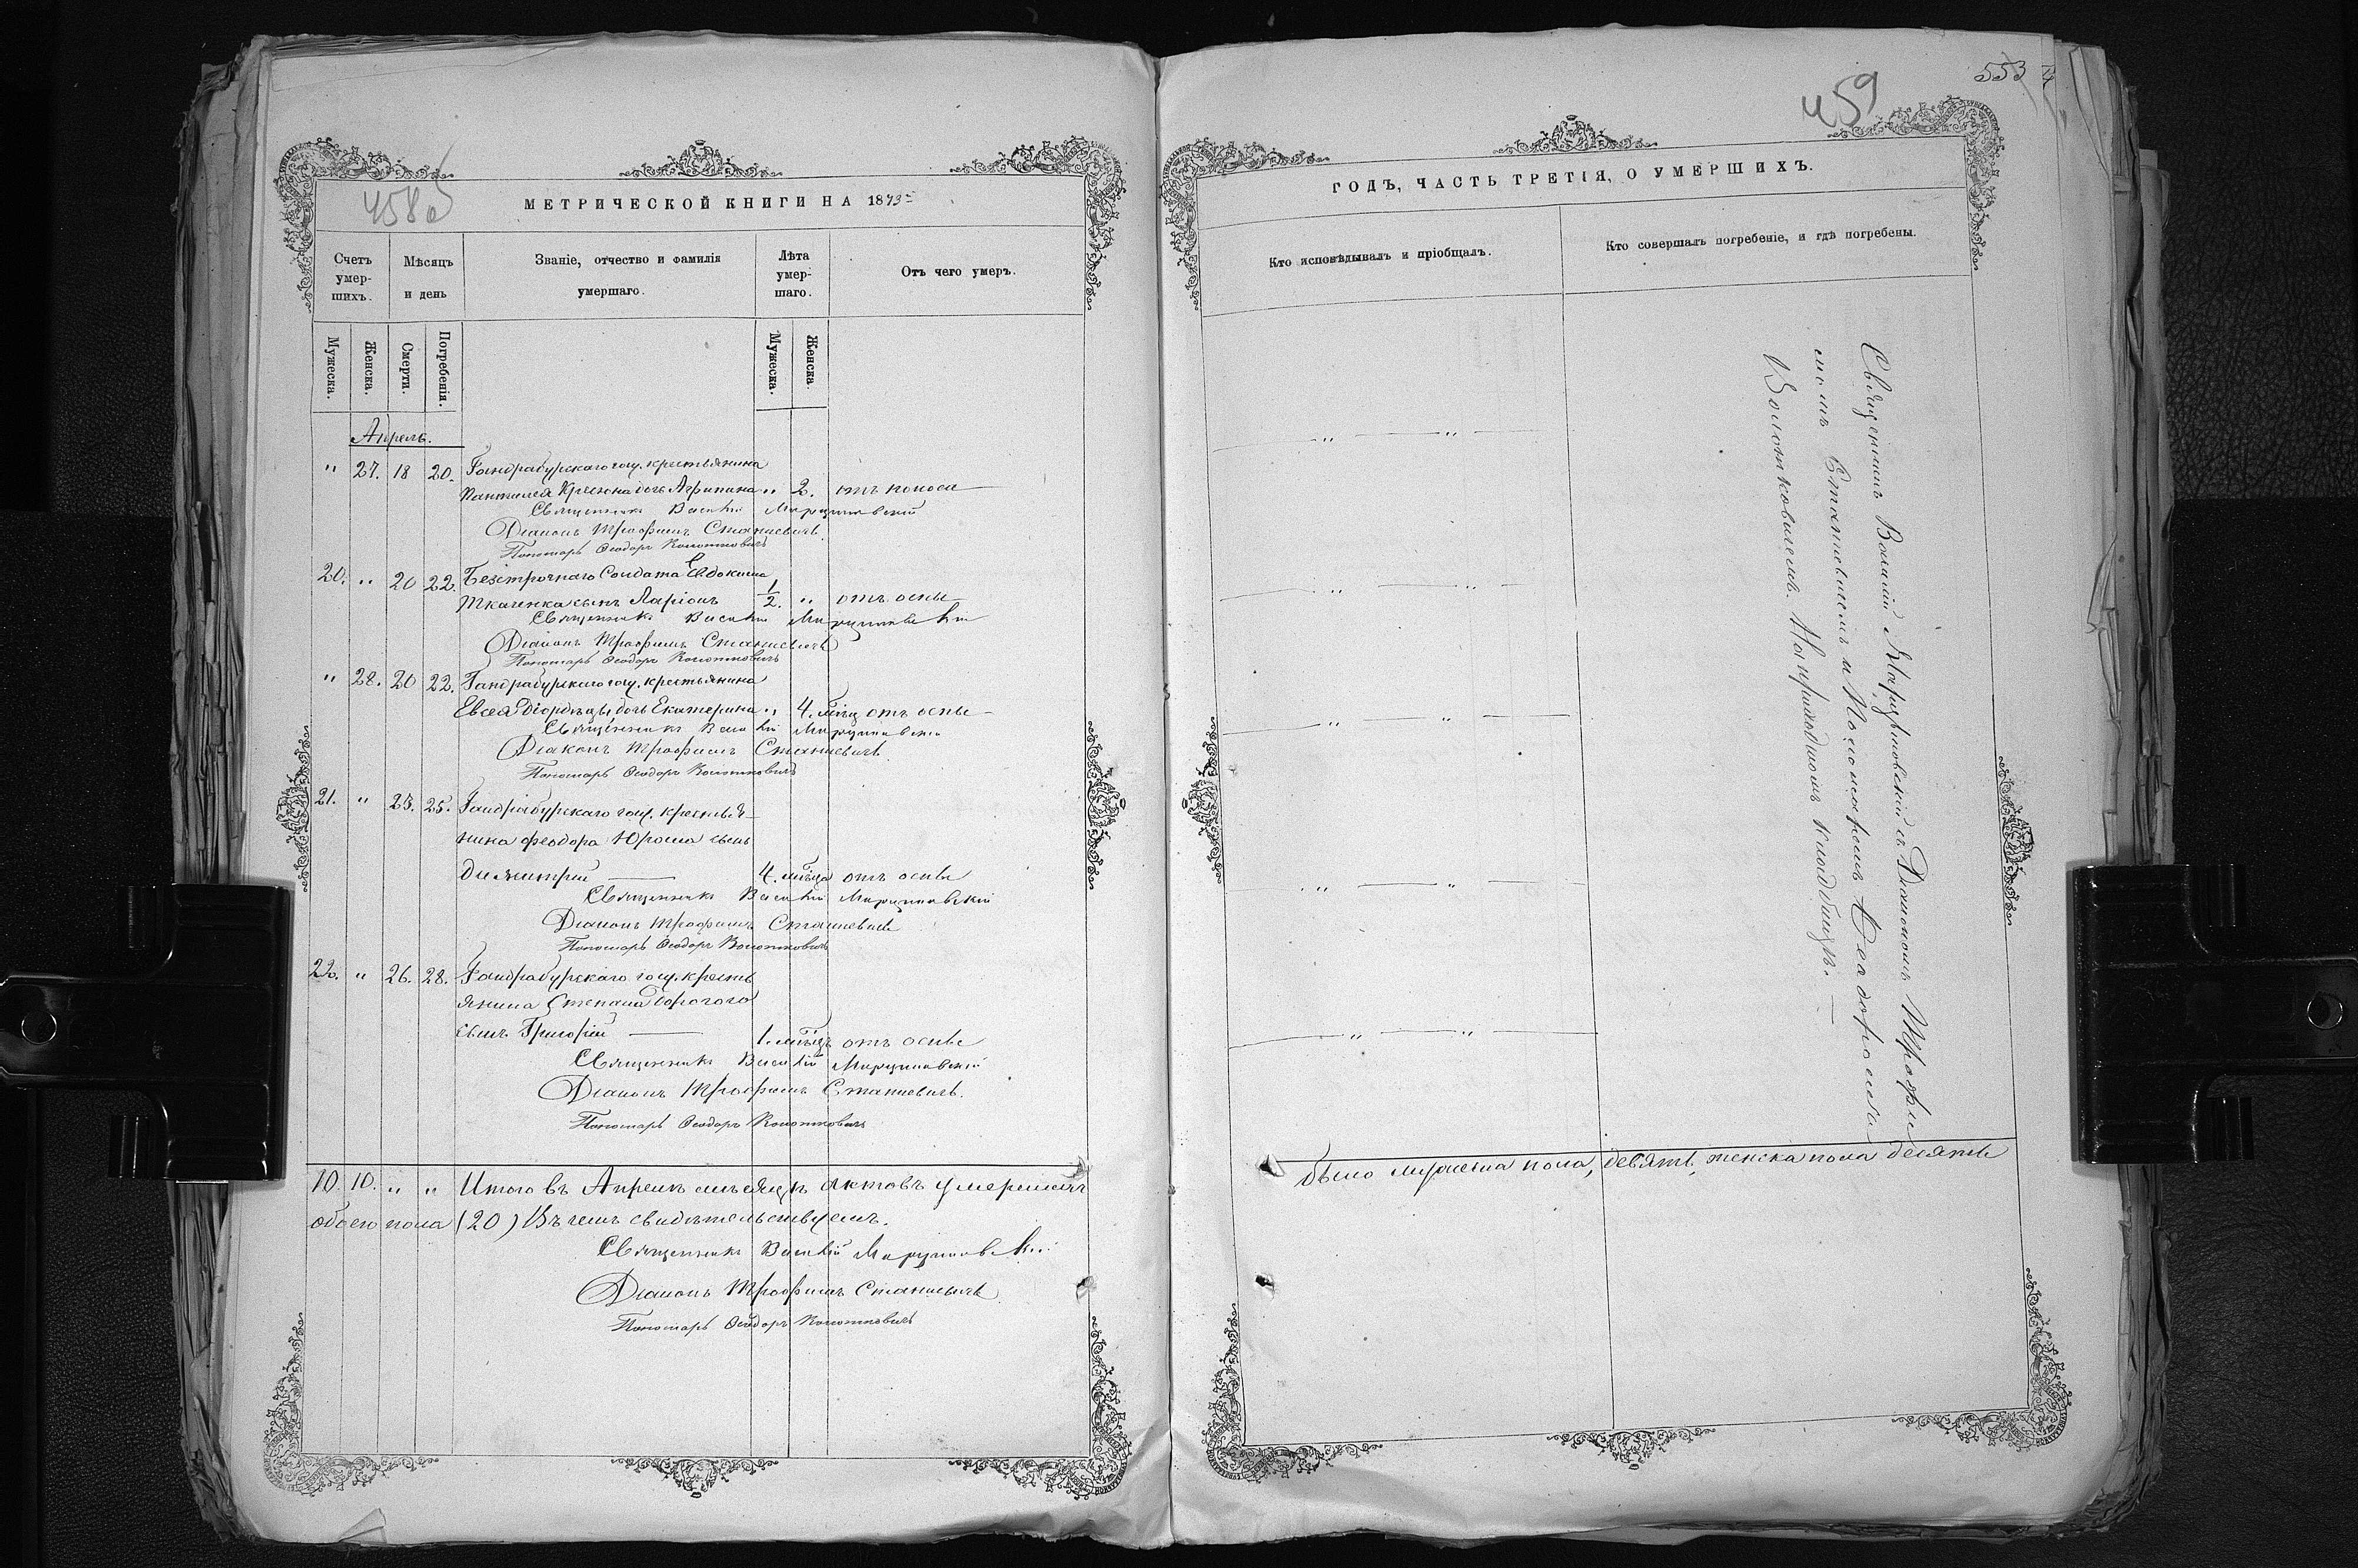 458 об
МЕТРИЧЕСКОЙ КНИГИ НА 1873
Счетъ умер-шихъ.
Мѣсяцъ и день
Званіе, отчество и фамилія умершаго.
Лѣта умер-шаго.
Отъ чего умеръ.
Мужеска. Женска. Смерти. Погребенія. Мужеска. Женска.
Апрель.
" 27. 18 20. Гандрабурскаго гоу. крестьянина
дочь Агрипина " 2. отъ поноса
Священникъ Василій
Діаконъ Трофимъ Станиевичъ
Пономарь Феодоръ
20. " 20 22. Безсрочнаго Солдата Евдокима
Ткаченка сынъ Ларіонъ 1/2. " отъ оспы
Священникъ Василій
Діаконъ Трофимъ Станиевичъ
Пономарь Феодоръ
" 28. 20 22. Гандрабурскаго гоу. крестьянина
Евсея дочь Екатерина " 4. мѣц отъ оспы
Священникъ Василій
Діаконъ Трофимъ Станиевичъ
Пономарь Феодоръ
21. " 23. 25. Гандрабурскаго гоу. крестья-
нина Феодора Юрома сынъ
Димитрій — 4. мѣца отъ оспы
Священникъ Василій
Діаконъ Трофимъ Станиевичъ
Пономарь Феодоръ
22. " 26. 28. Гандрабурскаго гоу. кресть
янина Степана
сынъ Григорій — 1. мѣцъ отъ оспы
Священникъ Василій
Діаконъ Трофимъ Станиевичъ.
Пономарь Феодоръ
10. 10. " " Итого въ Апрелѣ мѣсяцѣ актовъ умершихъ
обоего пола (20) Въ чемъ свидѣтельствуемъ.
Священникъ Василій
Діаконъ Трофимъ Станиевичъ
Пономарь Феодоръ
553
459
ГОДЪ, ЧАСТЬ ТРЕТІЯ, О УМЕРШИХЪ.
Кто исповѣдывалъ и пріобщалъ.
Кто совершалъ погребеніе, и гдѣ погребены.
— " — " —
— " — " —
— " — " —
— " — " —
— " — " —
Священникъ Василій съ Діакономъ Трофи
момъ Станиевичемъ и Пономаремъ Феодоромъ
На приходскомъ кладбищѣ. —
было мужеска пола, девять, женска пола десять